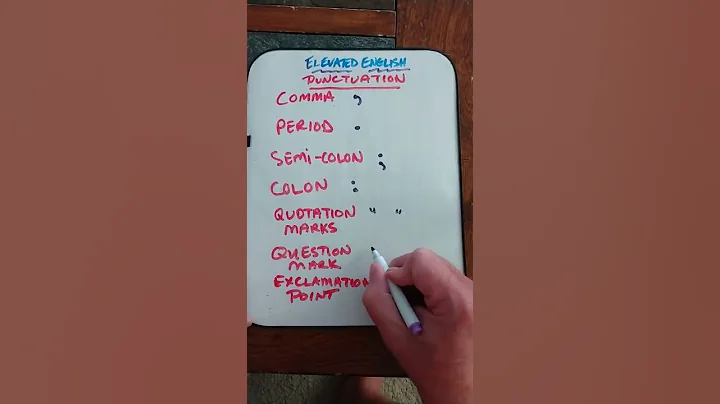 ELEVATED ENGLISH
PUNCTUATION
COMMA ,
PERIOD .
SEMI-COLON ;
COLON :
QUOTATION " "
MARKS
QUESTION
MARK
EXCLAMATION
POINT